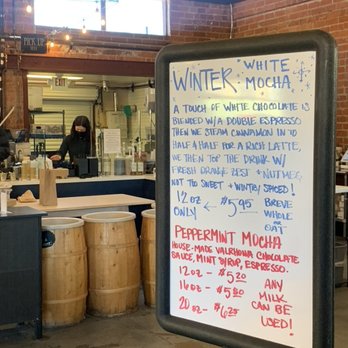 PICK UP
WINTER WHITE
MOCHA
A TOUCH OF WHITE CHOCOLATE IS
BLENDED W/A DOUBLE ESPRESSO
THEN WE STEAM CINNAMON INTO
HALF & HALF FOR A RICH LATTE,
WE THEN TOP THE DRINK W/
FRESH ORANGE ZEST + NUTMEG,
NOT TOO SWEET + WINTRY SPICED!
12oz ← $5.95 BREVE
ONLY WHOLE
OR
OAT
PEPPERMINT MOCHA
HOUSE-MADE VALRHONA CHOCOLATE
SAUCE, MINT SYRUP, ESPRESSO.
12oz - $5.20 ANY
16oz - $5.80 MILK
20oz - $6.25 CAN BE
USED!